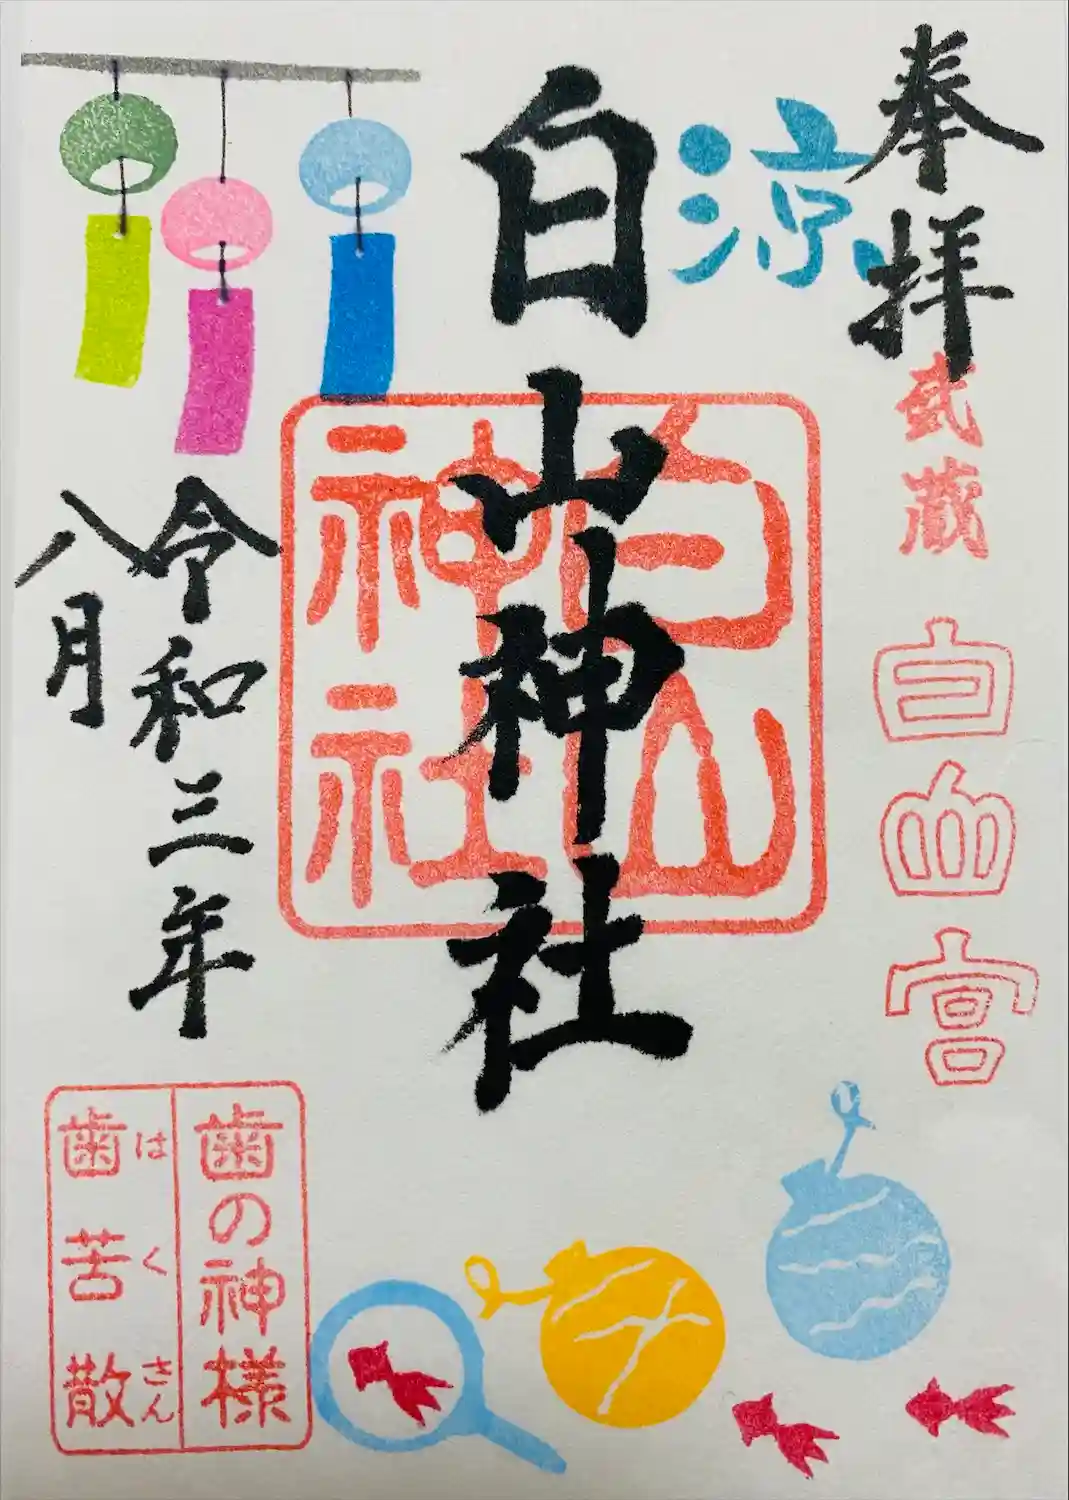 奉拝
武蔵
白山宮
涼
白山神社
白山
神社
令和三年
八月
歯の神様
歯苦散
はくさん